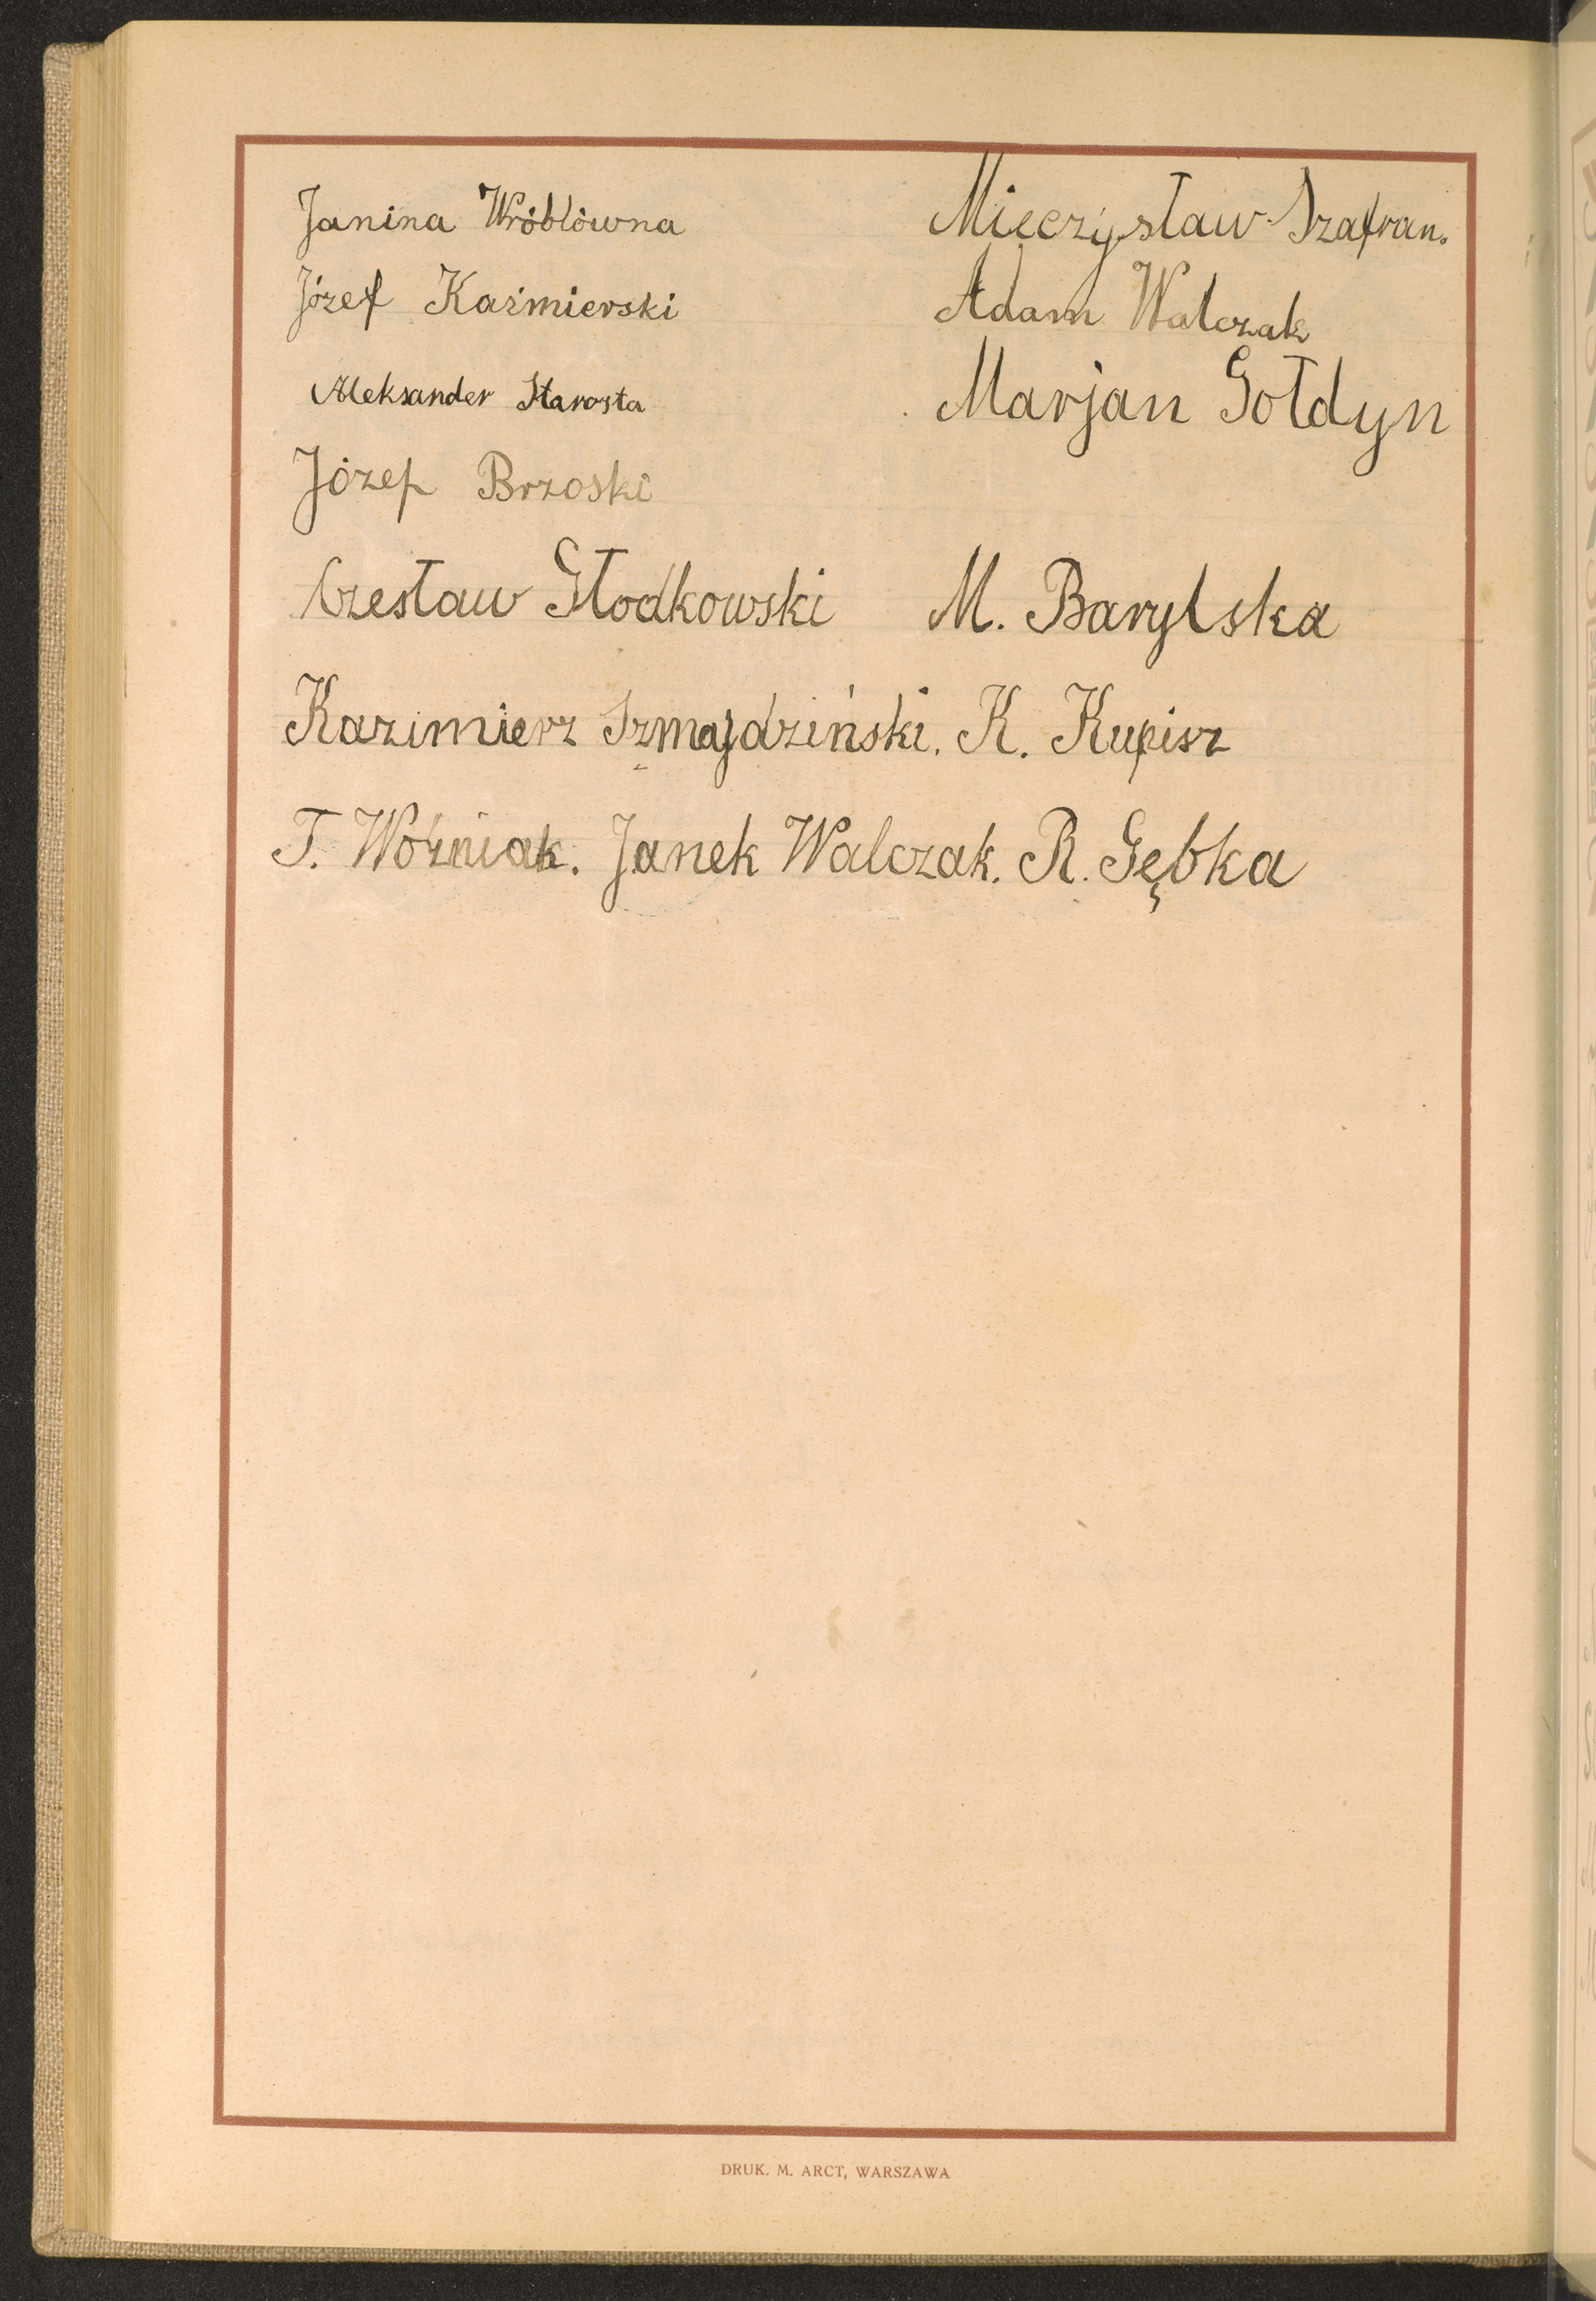 Janina Wróblówna Mieczysław Szafran.
Józef Kaźmierski Adam Walczak
Aleksander Starosta Marjan Gołdyn
Józef Brzoski
Czesław Głodkowski M. Barylska
Kazimierz Szmajdziński. K. Kupisz
T. Woźniak. Janek Walczak. R. Gębka
DRUK. M. ARCT, WARSZAWA